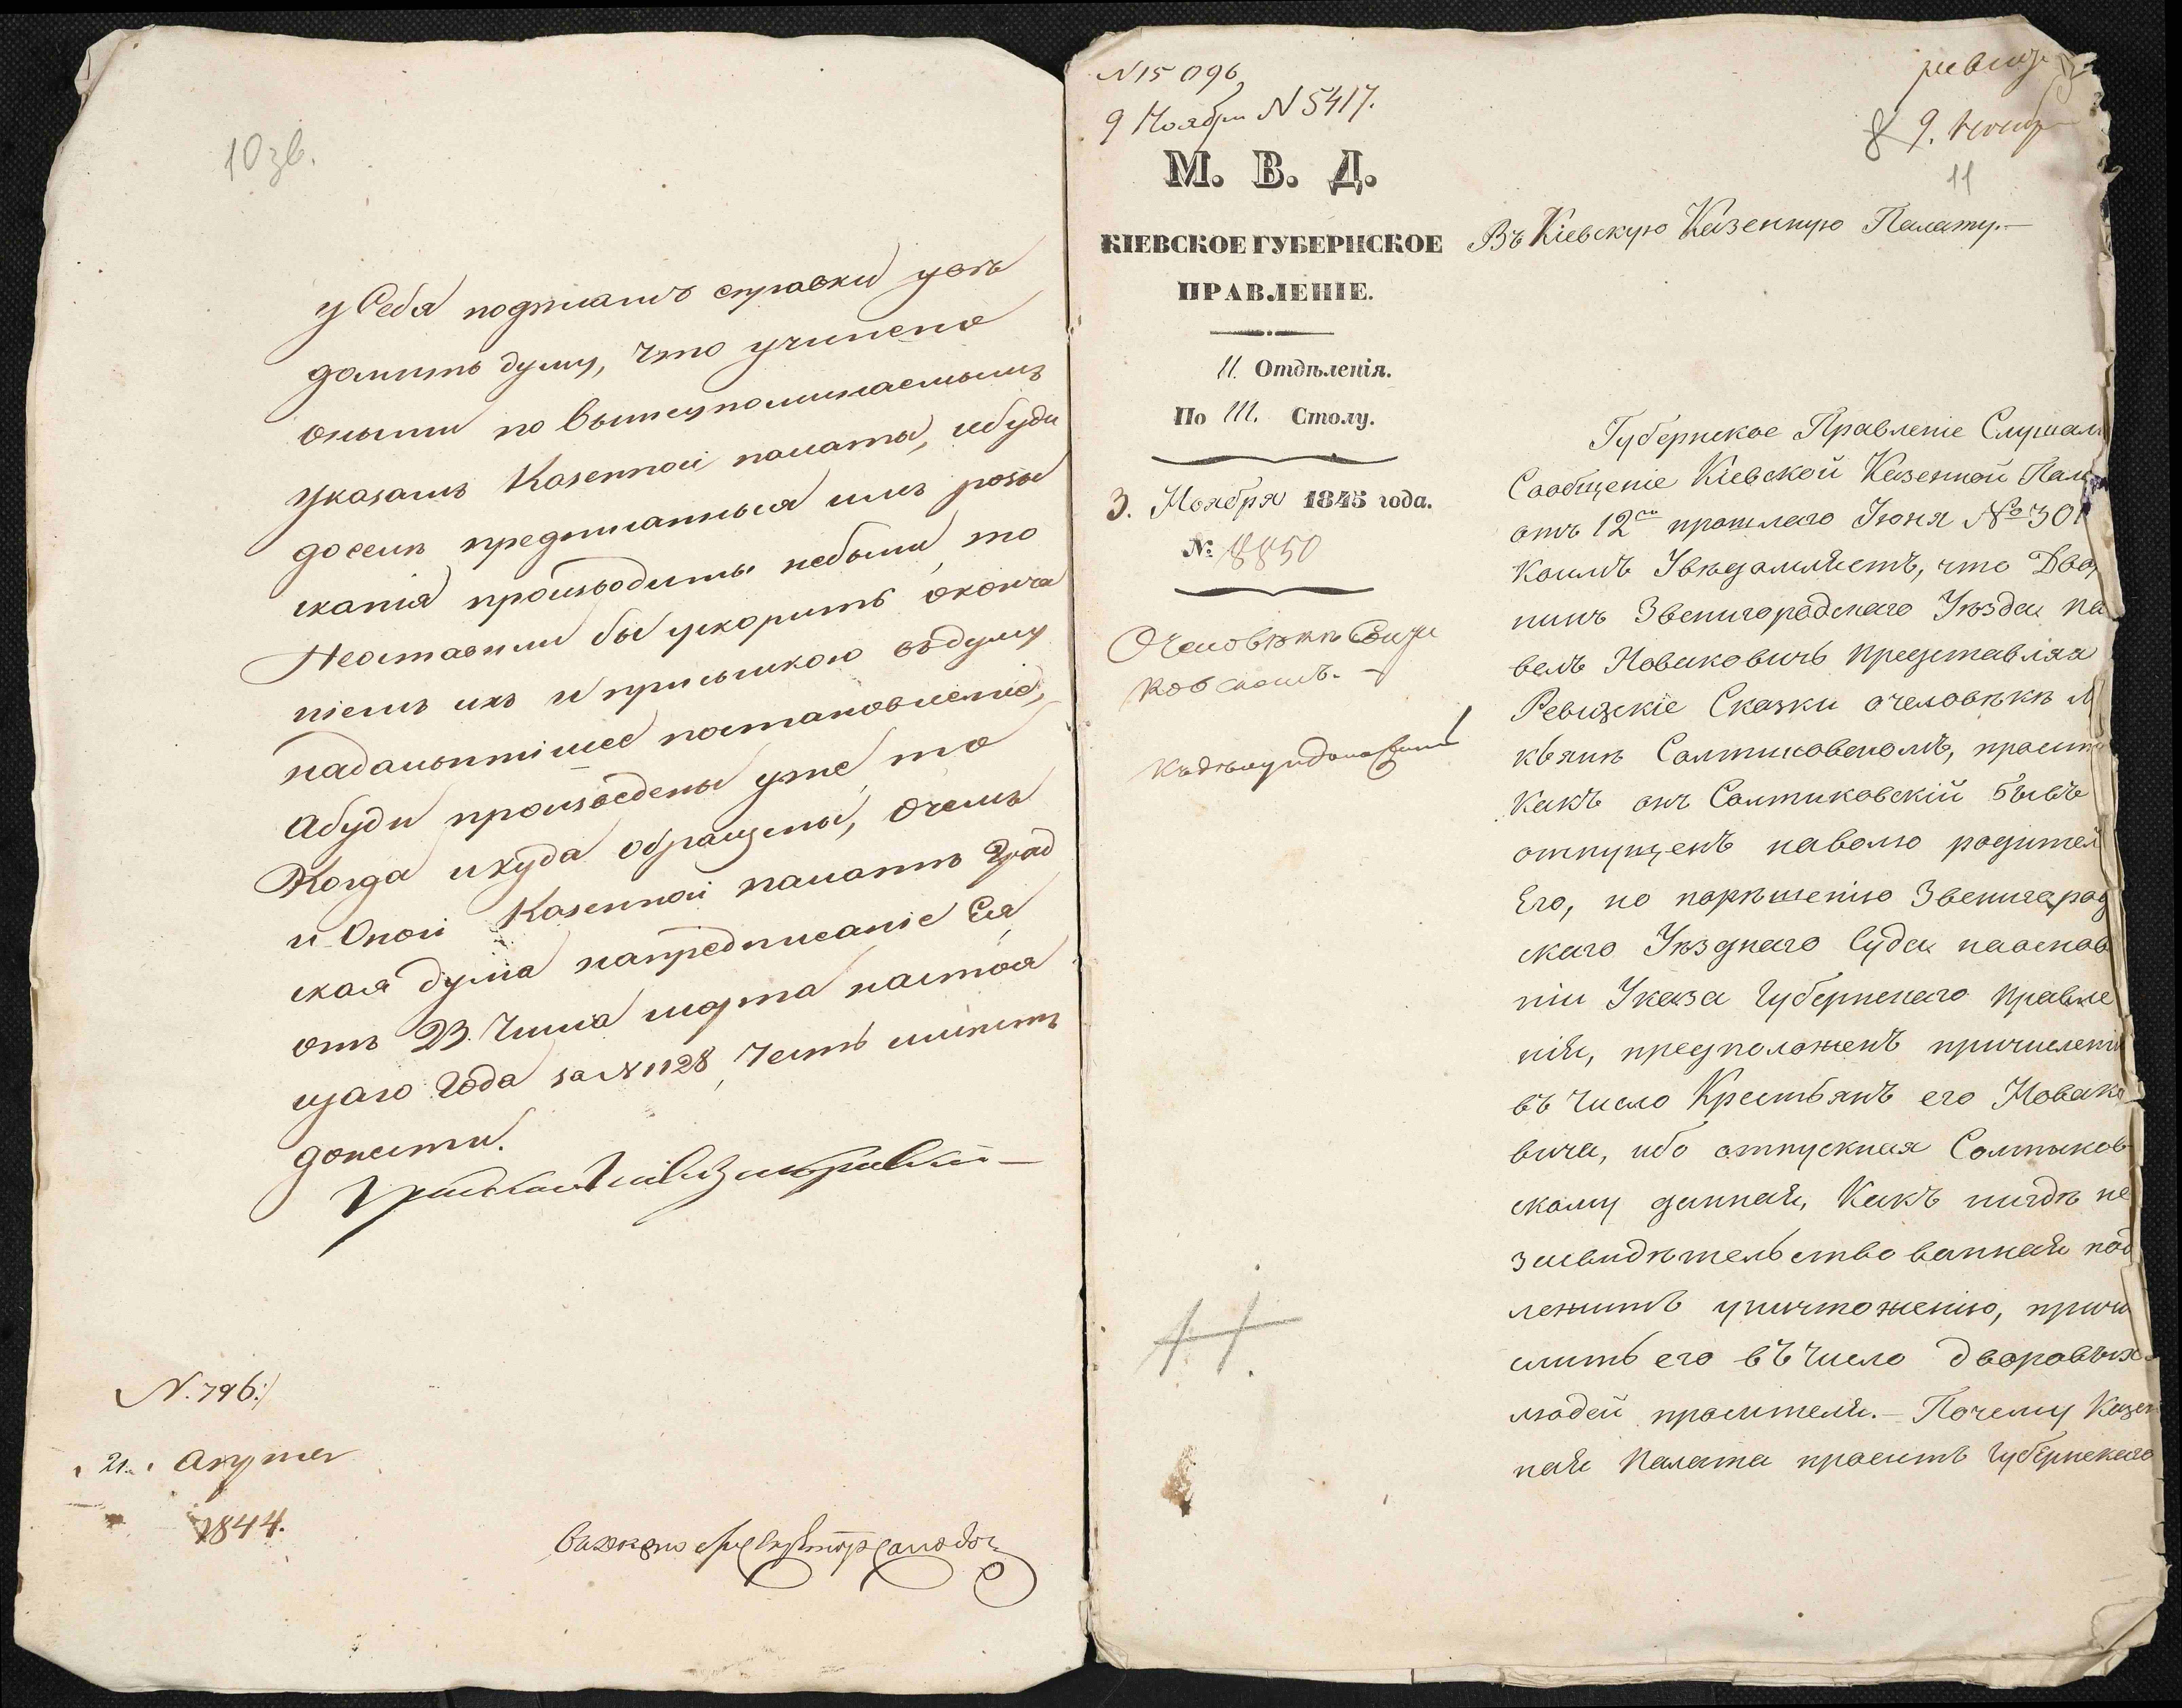 10 зв.
у Себя подѣламъ справки увѣ
домить думу, что учинено
оными по вышеупоминаемымъ
указамъ Казенной палаты, ибуди
доселѣ предписанныя имъ розы
сканія производимы небыли, то
Неоставили бы ускорить оконча
ніемъ ихъ и присылкою въдуму
надальнѣйшее постановленіе,
Абуди произведены уже, то
Когда икуда обращены, Очемъ
и Оной Казенной палатѣ Град
ская дума напредписаніе Ея
отъ 23. Числа марта настоя
щаго Года за № 1128, Честь имѣетъ
донести.
N. 796:
21. Августа
1844.
N 15 096
9 Ноября N 5417.
9. Нояб
11
М. В. Д.
КІЕВСКОЕ ГУБЕРНСКОЕ
ПРАВЛЕНІЕ.
II. Отдѣленія.
По III. Столу.
3. Ноября 1845 года.
№: 18850
Очеловѣкѣ Солти
ковскомъ.
Въ Кіевскую Казенную Палату.—
Губернское Правленіе Слушали
Сообщеніе Кіевской Казенной Пал
отъ 12го прошлаго Іюня № 301
коимъ Увѣдомляетъ, что Дво
нинъ Звенигородскаго Уѣзда Па
велъ Новаковичъ представляя
Ревизскіе Сказки очеловѣкѣ Л
кьянѣ Солтиковскомъ, проситъ
Какъ онъ Солтиковскій бывъ
отпущенъ наволю родител
Его, по порѣшенію Звенигород
скаго Уѣзднаго Суда наоснов
ніи Указа Губернскаго Правле
нія, предположенъ причисленію
въ Число Крестьянъ его Новако
вича, ибо отпускная Солтыков
скому данная, Какъ нигдѣ не
засвидѣтельствованная под
лежитъ уничтоженію, причи
слить его въ Число дворовыхъ
людей просителя.— Почему Казен
ная Палата проситъ Губернскаго